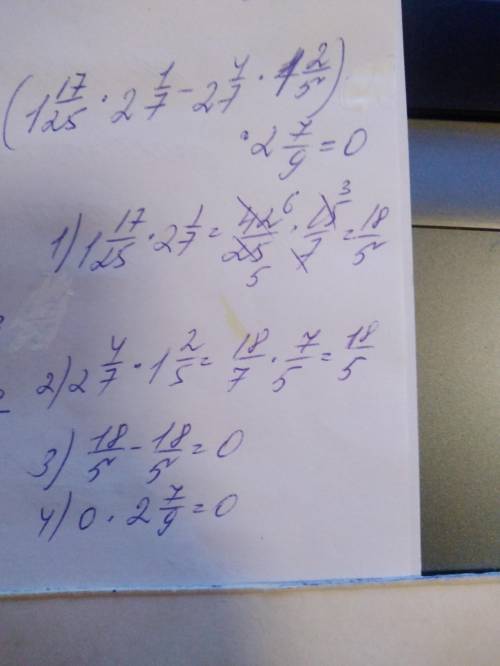 (1 17/25 · 2 1/7 - 2 4/7 · 1 2/5) ·
· 2 7/9 = 0
1) 1 17/25 · 2 1/7 = 42 6/25 5 · 15 3/7 = 18/5
2) 2 4/7 · 1 2/5 = 18/7 · 7/5 = 18/5
3) 18/5 - 18/5 = 0
4) 0 · 2 7/9 = 0